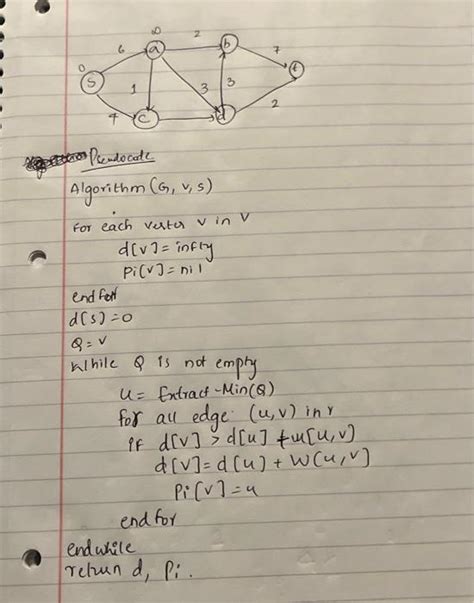 6 ∞ 2
a b 7
0
S 1 3 3 t
4 c d 2
Pseudocode
Algorithm (G, v, s)
For each vertex v in V
d[v] = infty
Pi[v] = nil
end for
d[s] = 0
Q = V
While Q is not empty
u = Extract-Min(Q)
for all edge (u, v) in r
if d[v] > d[u] + w[u, v]
d[v] = d[u] + W(u, v)
Pi[v] = u
end for
endwhile
return d, Pi.